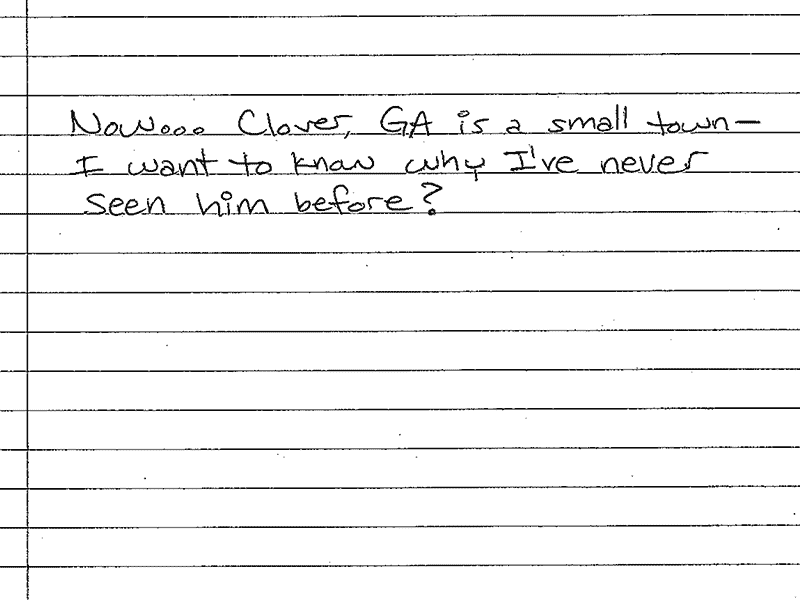 Now... Clover, GA is a small town—
I want to know why I've never
seen him before?